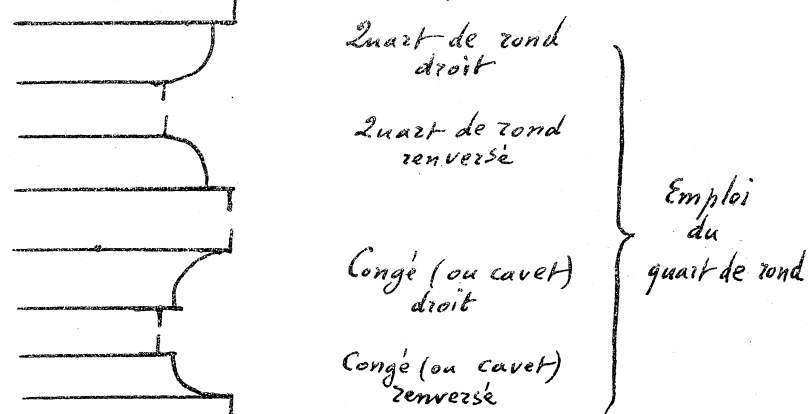 Quart de rond
droit
Quart de rond
renversé
Congé (ou cavet)
droit
Congé (ou cavet)
renversé
Emploi
du
quart de rond